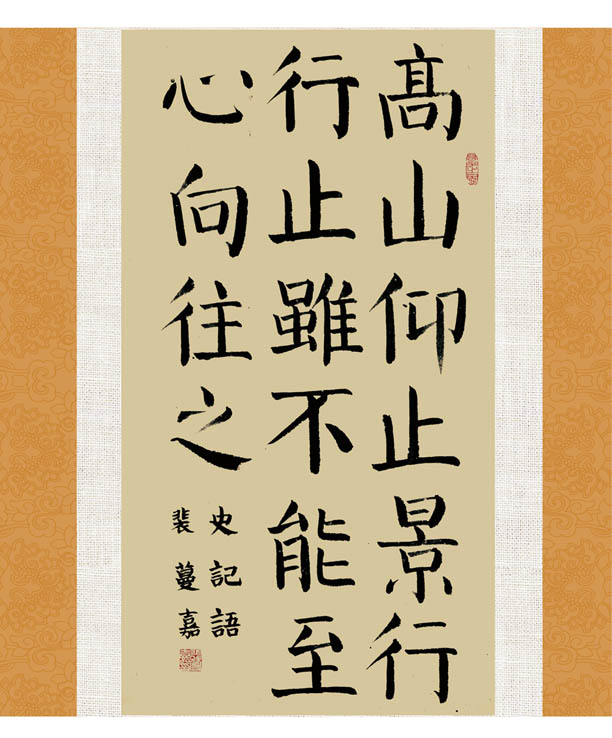 髙山仰止景行
行止雖不能至
心向往之
史記語
裴蔓嘉